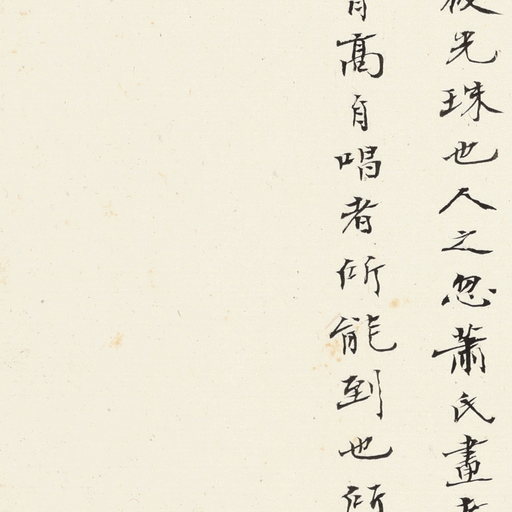 光珠也人之忽蕭氏畫
高自唱者所能到也所